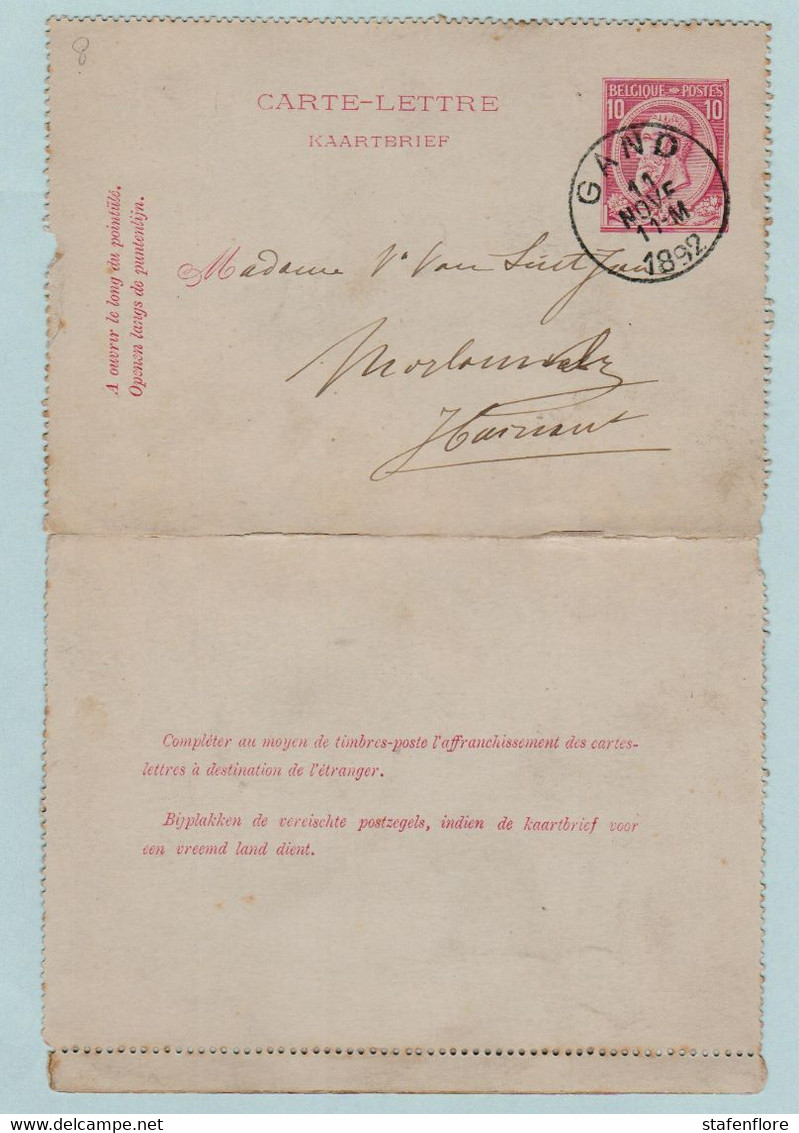 8
CARTE-LETTRE
KAARTBRIEF
BELGIQUE POSTES
10 10
GAND
11
NOVE
11-M
1892
A ouvrir le long du pointillé.
Openen langs de puntenlijn.
Madame Vᵉ Van Sint Jan
Morlanwelz
Hainaut
Compléter au moyen de timbres-poste l'affranchissement des cartes-
lettres à destination de l'étranger.
Bijplakken de vereischte postzegels, indien de kaartbrief voor
een vreemd land dient.
delcampe.net
stafenflore